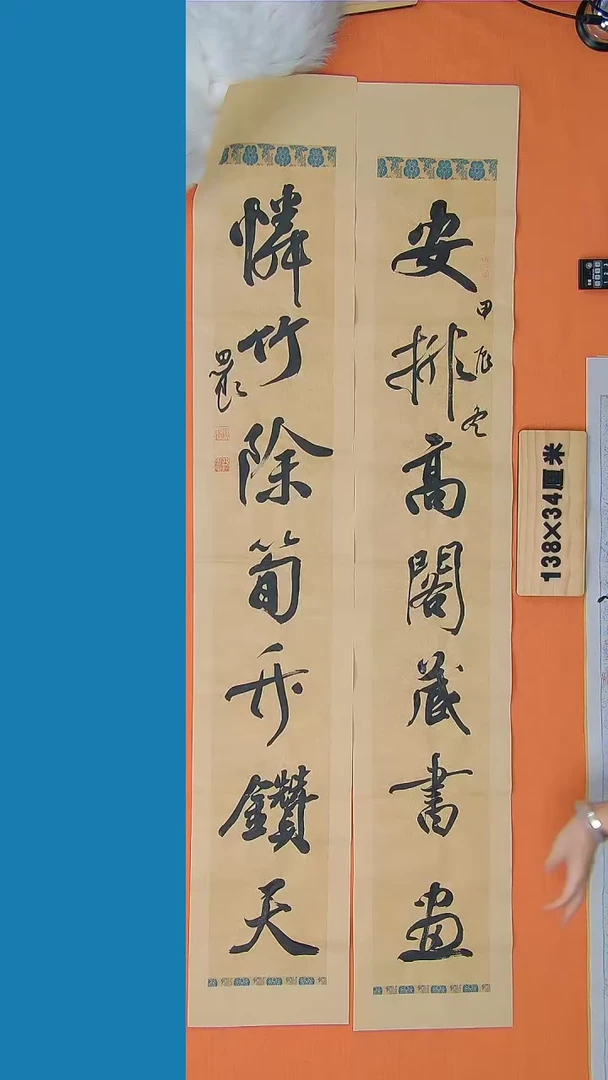 安排高閣藏書畫
甲辰冬
憐竹除筍鑽天
138×34厘米